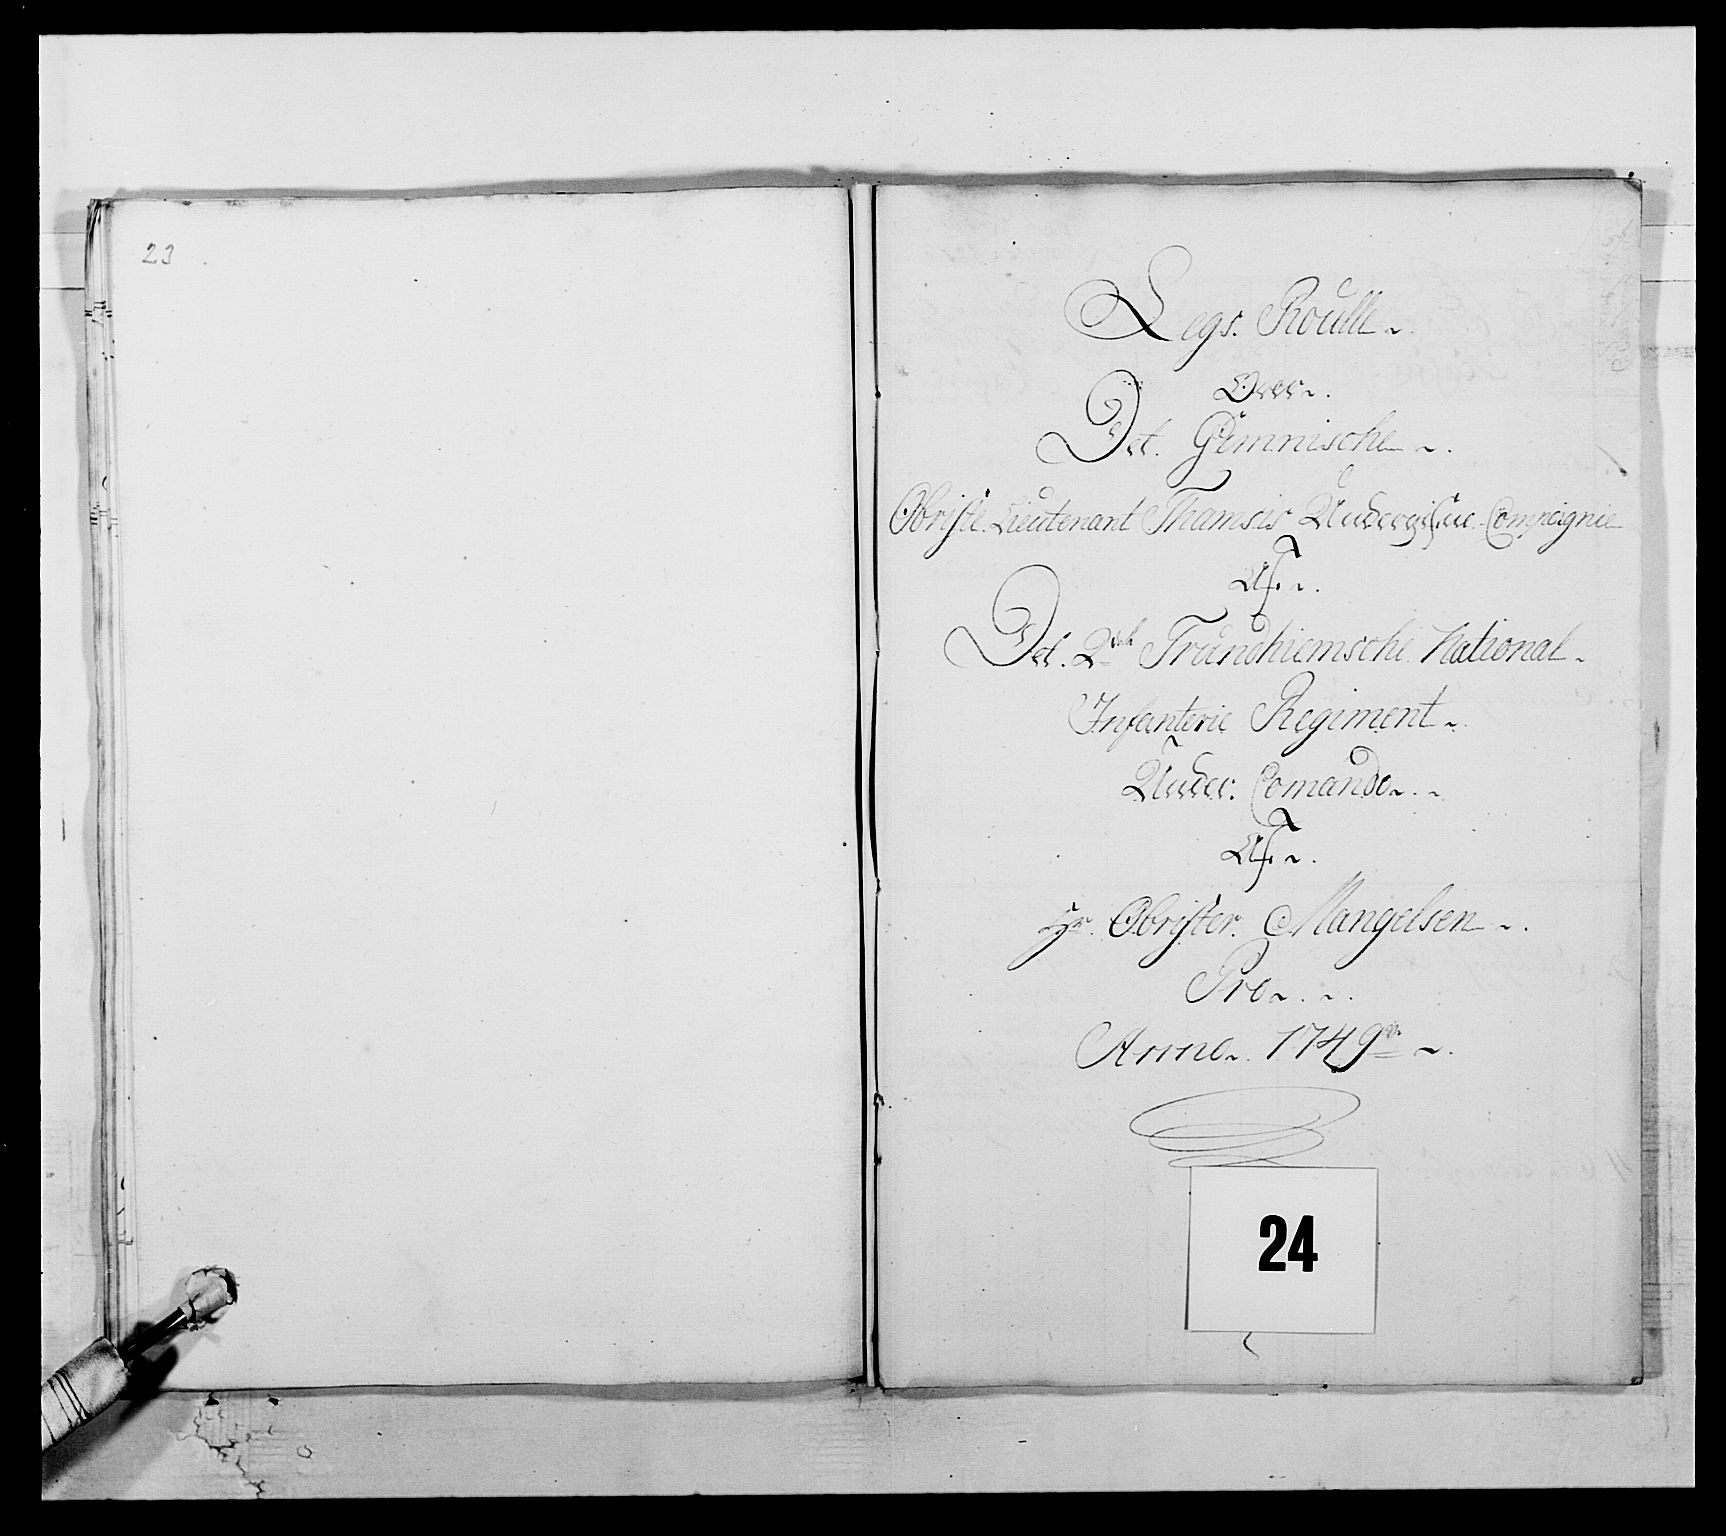 23
Legs. Roulle
Over
Det. Gimnische
Obriste Lieutenant Thamsis Undergifne Compagnie
Af
Det. 2det Trundhiemsche National
Infanterie Regiment
Under. Comando
Af
Hr. Obrister. Mangelsen
Pro
Anno. 1749
24